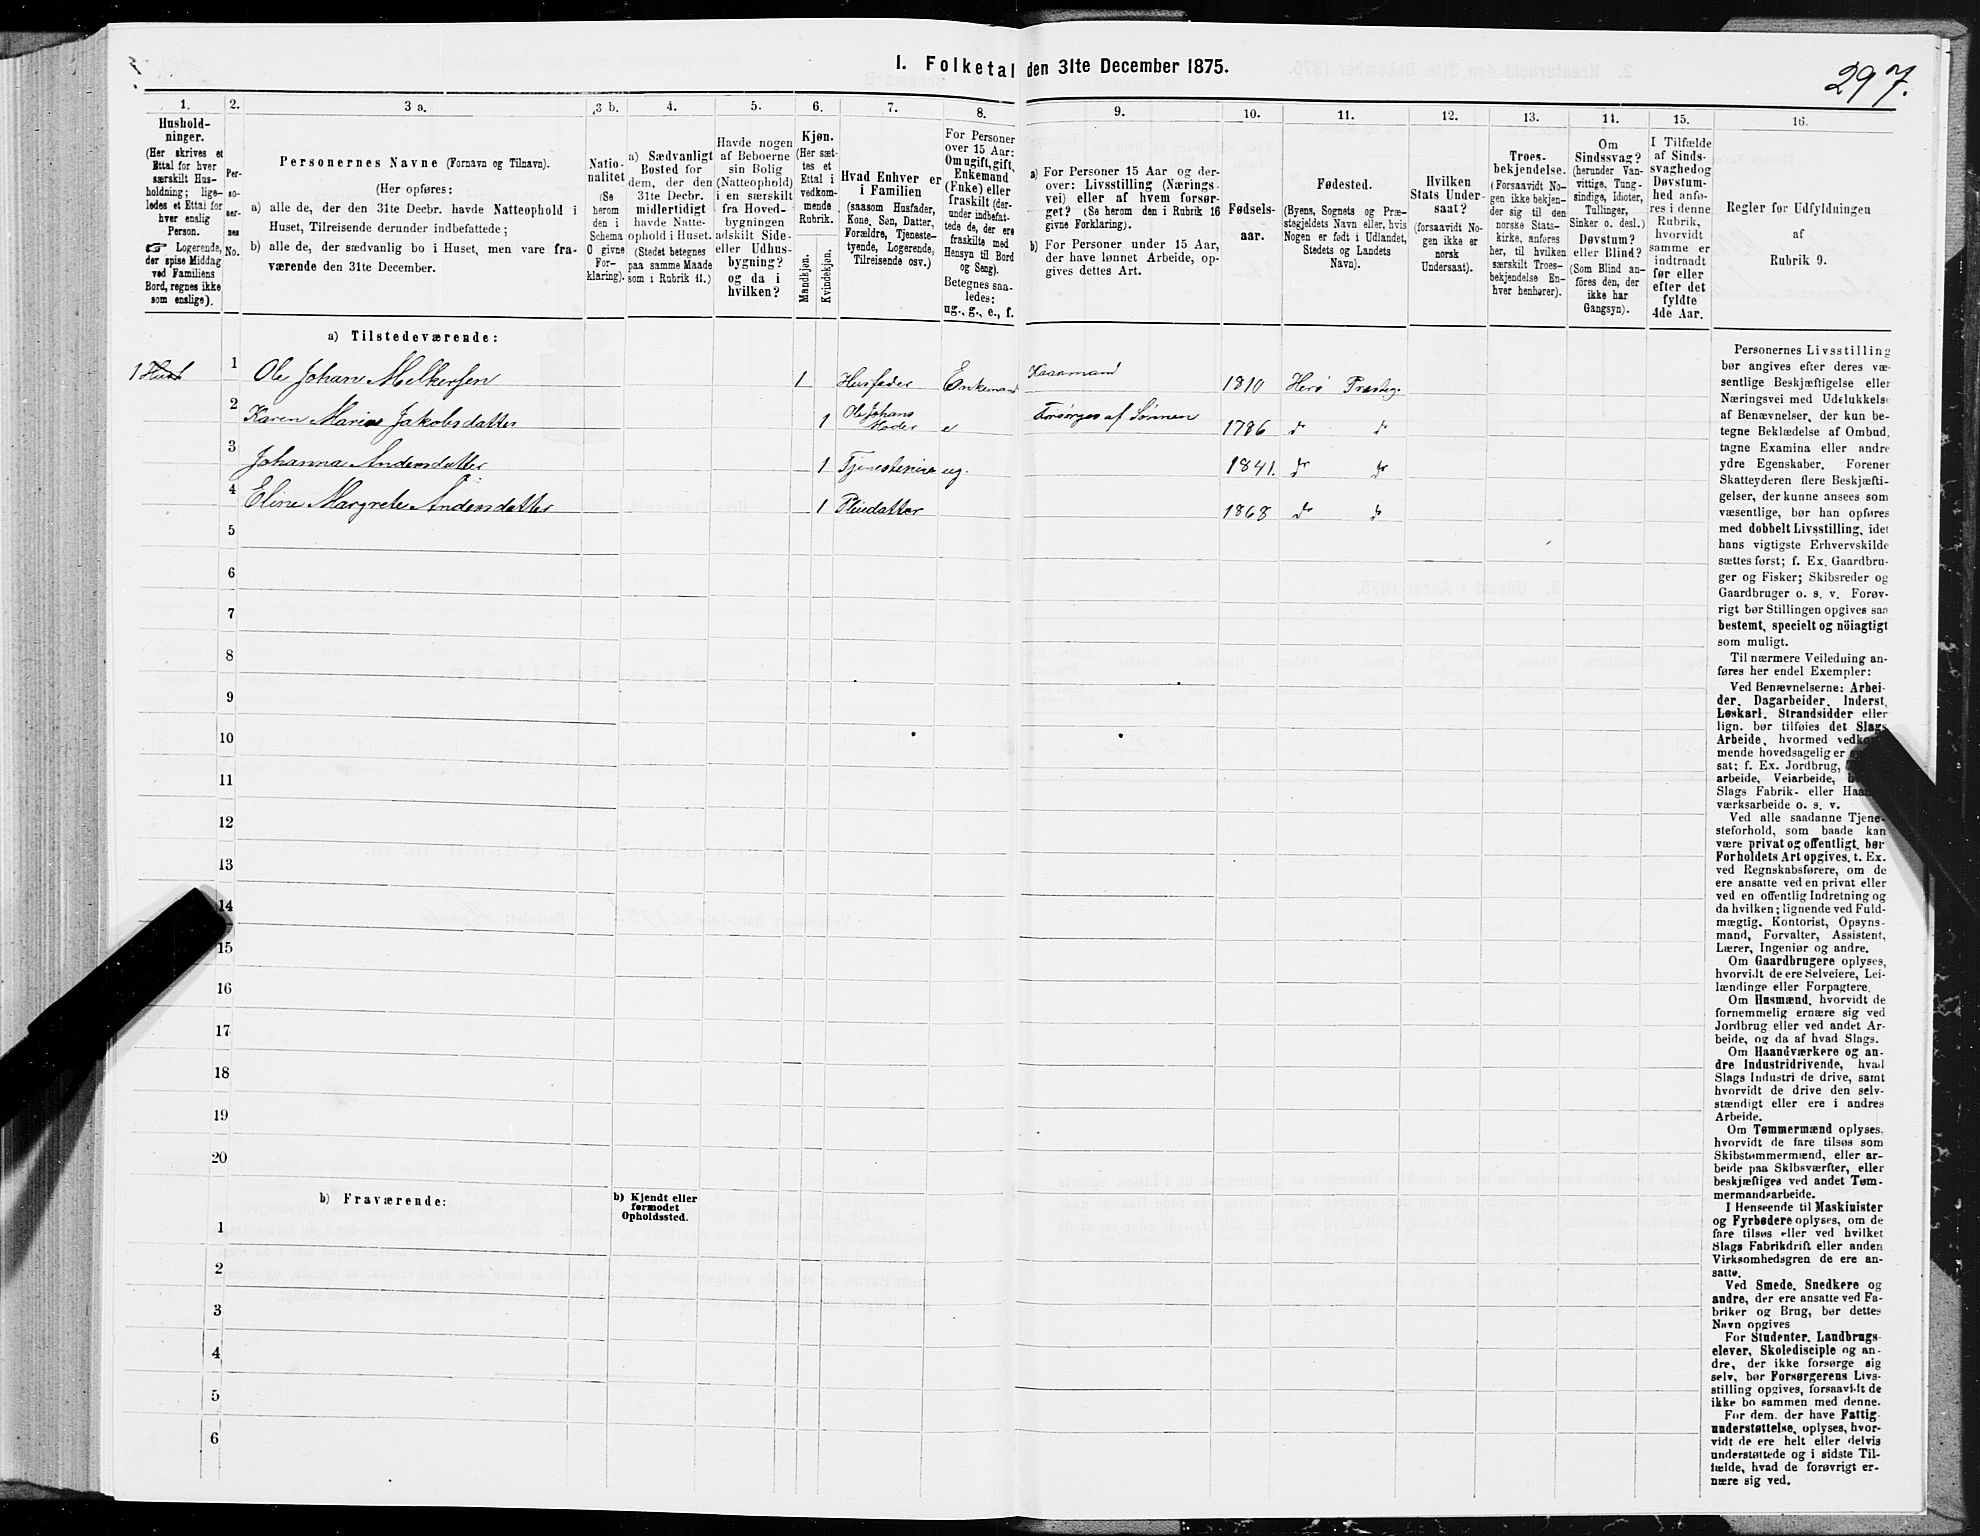 I. Folketal den 31te December 1875.
297.
1. 2. 3 a. 3 b. 4. 5. 6. 7. 8. 9. 10. 11. 12. 13. 14. 15. 16.
Hushold-
ninger.
(Her skrives et
Ettal for hver
særskilt Hus-
holdning; lige-
ledes et Ettal for
hver enslig
Person.
☞ Logerende,
der spise Middag
ved Familiens
Bord, regnes ikke
som enslige).
Per-
so-
ner-
nes
No.
Personernes Navne (Fornavn og Tilnavn).
(Her opføres:
a) alle de, der den 31te Decbr. havde Natteophold i
Huset, Tilreisende derunder indbefattede;
b) alle de, der sædvanlig bo i Huset, men vare fra-
værende den 31te December.
Natio-
nalitet
(Se
herom
den i
Schema
O givne
For-
klaring).
a) Sædvanligt
Bosted for
dem, der den
31te Decbr.
midlertidigt
havde Natte-
ophold i Huset.
(Stedet betegnes
paa samme Maade
som i Rubrik 11.)
Havde nogen
af Beboerne
sin Bolig
(Natteophold)
i en særskilt
fra Hoved-
bygningen
adskilt Side-
eller Udhus-
bygning?
og da i
hvilken?
Kjøn.
(Her sæt-
tes et
Ettal i
vedkom-
mende
Rubrik.
Mandkjøn.
Kvindekjøn.
Hvad Enhver er
i Familien
(saasom Husfader,
Kone, Søn, Datter,
Forældre, Tjeneste-
tyende, Logerende,
Tilreisende osv.)
For Personer
over 15 Aar:
Om ugift, gift,
Enkemand
(Enke) eller
fraskilt (der-
under indbefat-
tede de, der ere
fraskilte med
Hensyn til Bord
og Seng).
Betegnes saa-
ledes:
ug., g., e., f.
a) For Personer 15 Aar og der-
over: Livsstilling (Nærings-
vei) eller af hvem forsør-
get? (Se herom den i Rubrik 16
givne Forklaring).
b) For Personer under 15 Aar,
der have lønnet Arbeide, op-
gives dettes Art.
Fødsels-
aar.
Fødested.
(Byens, Sognets og Præ-
stegjeldets Navn eller, hvis
Nogen er født i Udlandet,
Stedets og Landets
Navn).
Hvilken
Stats Under-
saat?
(forsaavidt No-
gen ikke er
norsk
Undersaat).
Troes-
bekjendelse.
(Forsaavidt No-
gen ikke bekjen-
der sig til den
norske Stats-
kirke, anføres
her, til hvilken
særskilt Troes-
bekjendelse En-
hver henhører).
Om
Sindssvag?
(herunder Van-
vittige, Tung-
sindige, Idioter,
Tullinger,
Sinker o. desl.)
Døvstum?
eller Blind?
(Som Blind an-
føres den, der
ikke har
Gangsyn).
I Tilfælde
af Sinds-
svaghed og
Døvstum-
hed anfø-
res i denne
Rubrik,
hvorvidt
samme er
indtraadt
før eller
efter det
fyldte
4de Aar.
Regler for Udfyldningen
af
Rubrik 9.
a) Tilstedeværende:
1 1 Ole Johan Melkersen 1 Husfader Enkemand Kaarmand 1810 Herø Præsteg.
2 Karen Marie Jakobsdatter 1 Ole Johans Moder e Forsørges af Sønnen 1786 do do
3 Johanna Andersdatter 1 ug. 1841. do do
4 Eline Margrete Andersdatter 1 Pleiedatter 1868 do do
5
6
7
8
9
10
11
12
13
14
15
16
17
18
19
20
b) Fraværende:
b) Kjendt eller
formodet
Opholdssted.
1
2
3
4
5
6
Personernes Livsstilling
bør angives efter deres væ-
sentlige Beskjæftigelse eller
Næringsvei med Udelukkelse
af Benævnelser, der kun be-
tegne Beklædelse af Ombud,
tagne Examina eller andre
ydre Egenskaber. Forener
Skatteyderen flere Beskjæfti-
gelser, der kunne ansees som
væsentlige, bør han opføres
med dobbelt Livsstilling, idet
hans vigtigste Erhvervskilde
sættes først; f. Ex. Gaardbru-
ger og Fisker; Skibsreder og
Gaardbruger o. s. v. Forøv-
rigt bør Stillingen opgives saa
bestemt, specielt og nøiagtigt
som muligt.
Til nærmere Veiledning an-
føres her endel Exempler:
Ved Benævnelserne: Arbei-
der, Dagarbeider, Inderst,
Løskarl, Strandsidder eller
lign. bør tilføies det Slags
Arbeide, hvormed
mende hovedsagelig er
sat; f. Ex. Jordbrug,
arbeide, Veiarbeide,
Slags Fabrik- eller
værksarbeide o. s. v.
Ved alle saadanne Tjene-
steforhold, som baade kan
være privat og offentligt, bør
Forholdets Art opgives, t. Ex.
ved Regnskabsførere, om de
ere ansatte ved en privat eller
ved en offentlig Indretning og
da hvilken; lignende ved Fuld-
mægtig, Kontorist, Opsyns-
mand, Forvalter, Assistent,
Lærer, Ingeniør og andre.
Om Gaardbrugere oplyses,
hvorvidt de ere Selveiere, Lei-
lændinge eller Forpagtere.
Om Husmænd, hvorvidt de
fornemmelig ernære sig ved
Jordbrug eller ved andet Ar-
beide, og da af hvad Slags.
Om Haandværkere og an-
dre Industridrivende, hvad
Slags Industri de drive, samt
hvorvidt de drive den selv-
stændigt eller ere i andres
Arbeide.
Om Tømmermænd oplyses,
hvorvidt de fare tilsøs som
Skibstømmermænd, eller ar-
beide paa Skibsværfter, eller
beskjæftiges ved andet Tøm-
mermandsarbeide.
I Henseende til Maskinister
og Fyrbødere oplyses, om de
fare tilsøs eller ved hvilket
Slags Fabrikdrift eller anden
Virksomhedsgren de ere an-
satte.
Ved Smede, Snedkere og
andre, der ere ansatte ved Fa-
briker og Brug, bør dettes
Navn opgives
For Studenter, Landbrugs-
elever, Skoledisciple og an-
dre, der ikke forsørge sig
selv, bør Forsørgerens Livs-
stilling opgives, forsaavidt de
ikke bo sammen med denne.
For dem, der have Fattig-
understøttelse, oplyses, hvor-
vidt de ere helt eller delvis
understøttede og i sidste Til-
fælde, hvad de forøvrigt er-
nære sig ved.